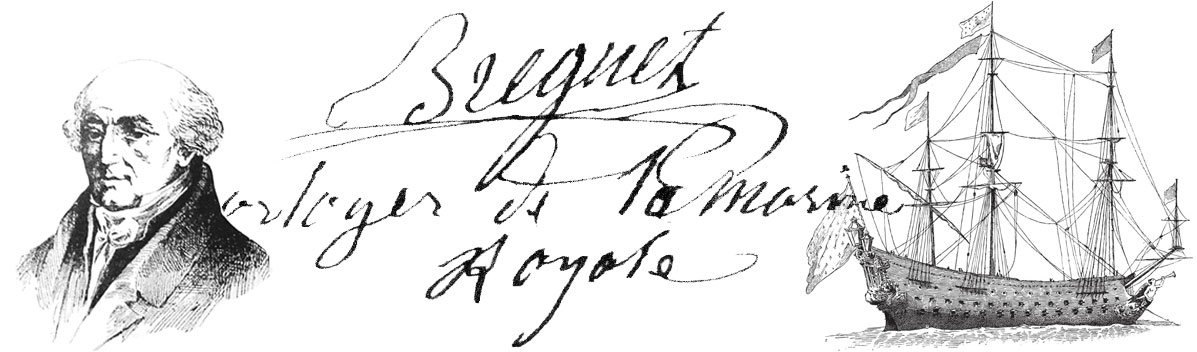 Breguet
orloger de la marine
Royale